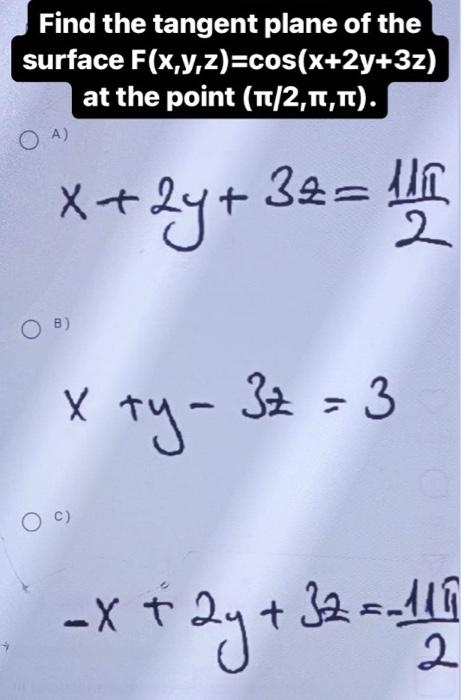 Find the tangent plane of the
surface F(x,y,z)=cos(x+2y+3z)
at the point (π/2,π,π).
A)
x + 2y + 3z = 11π/2
B)
x + y - 3z = 3
C)
-x + 2y + 3z = -11π/2